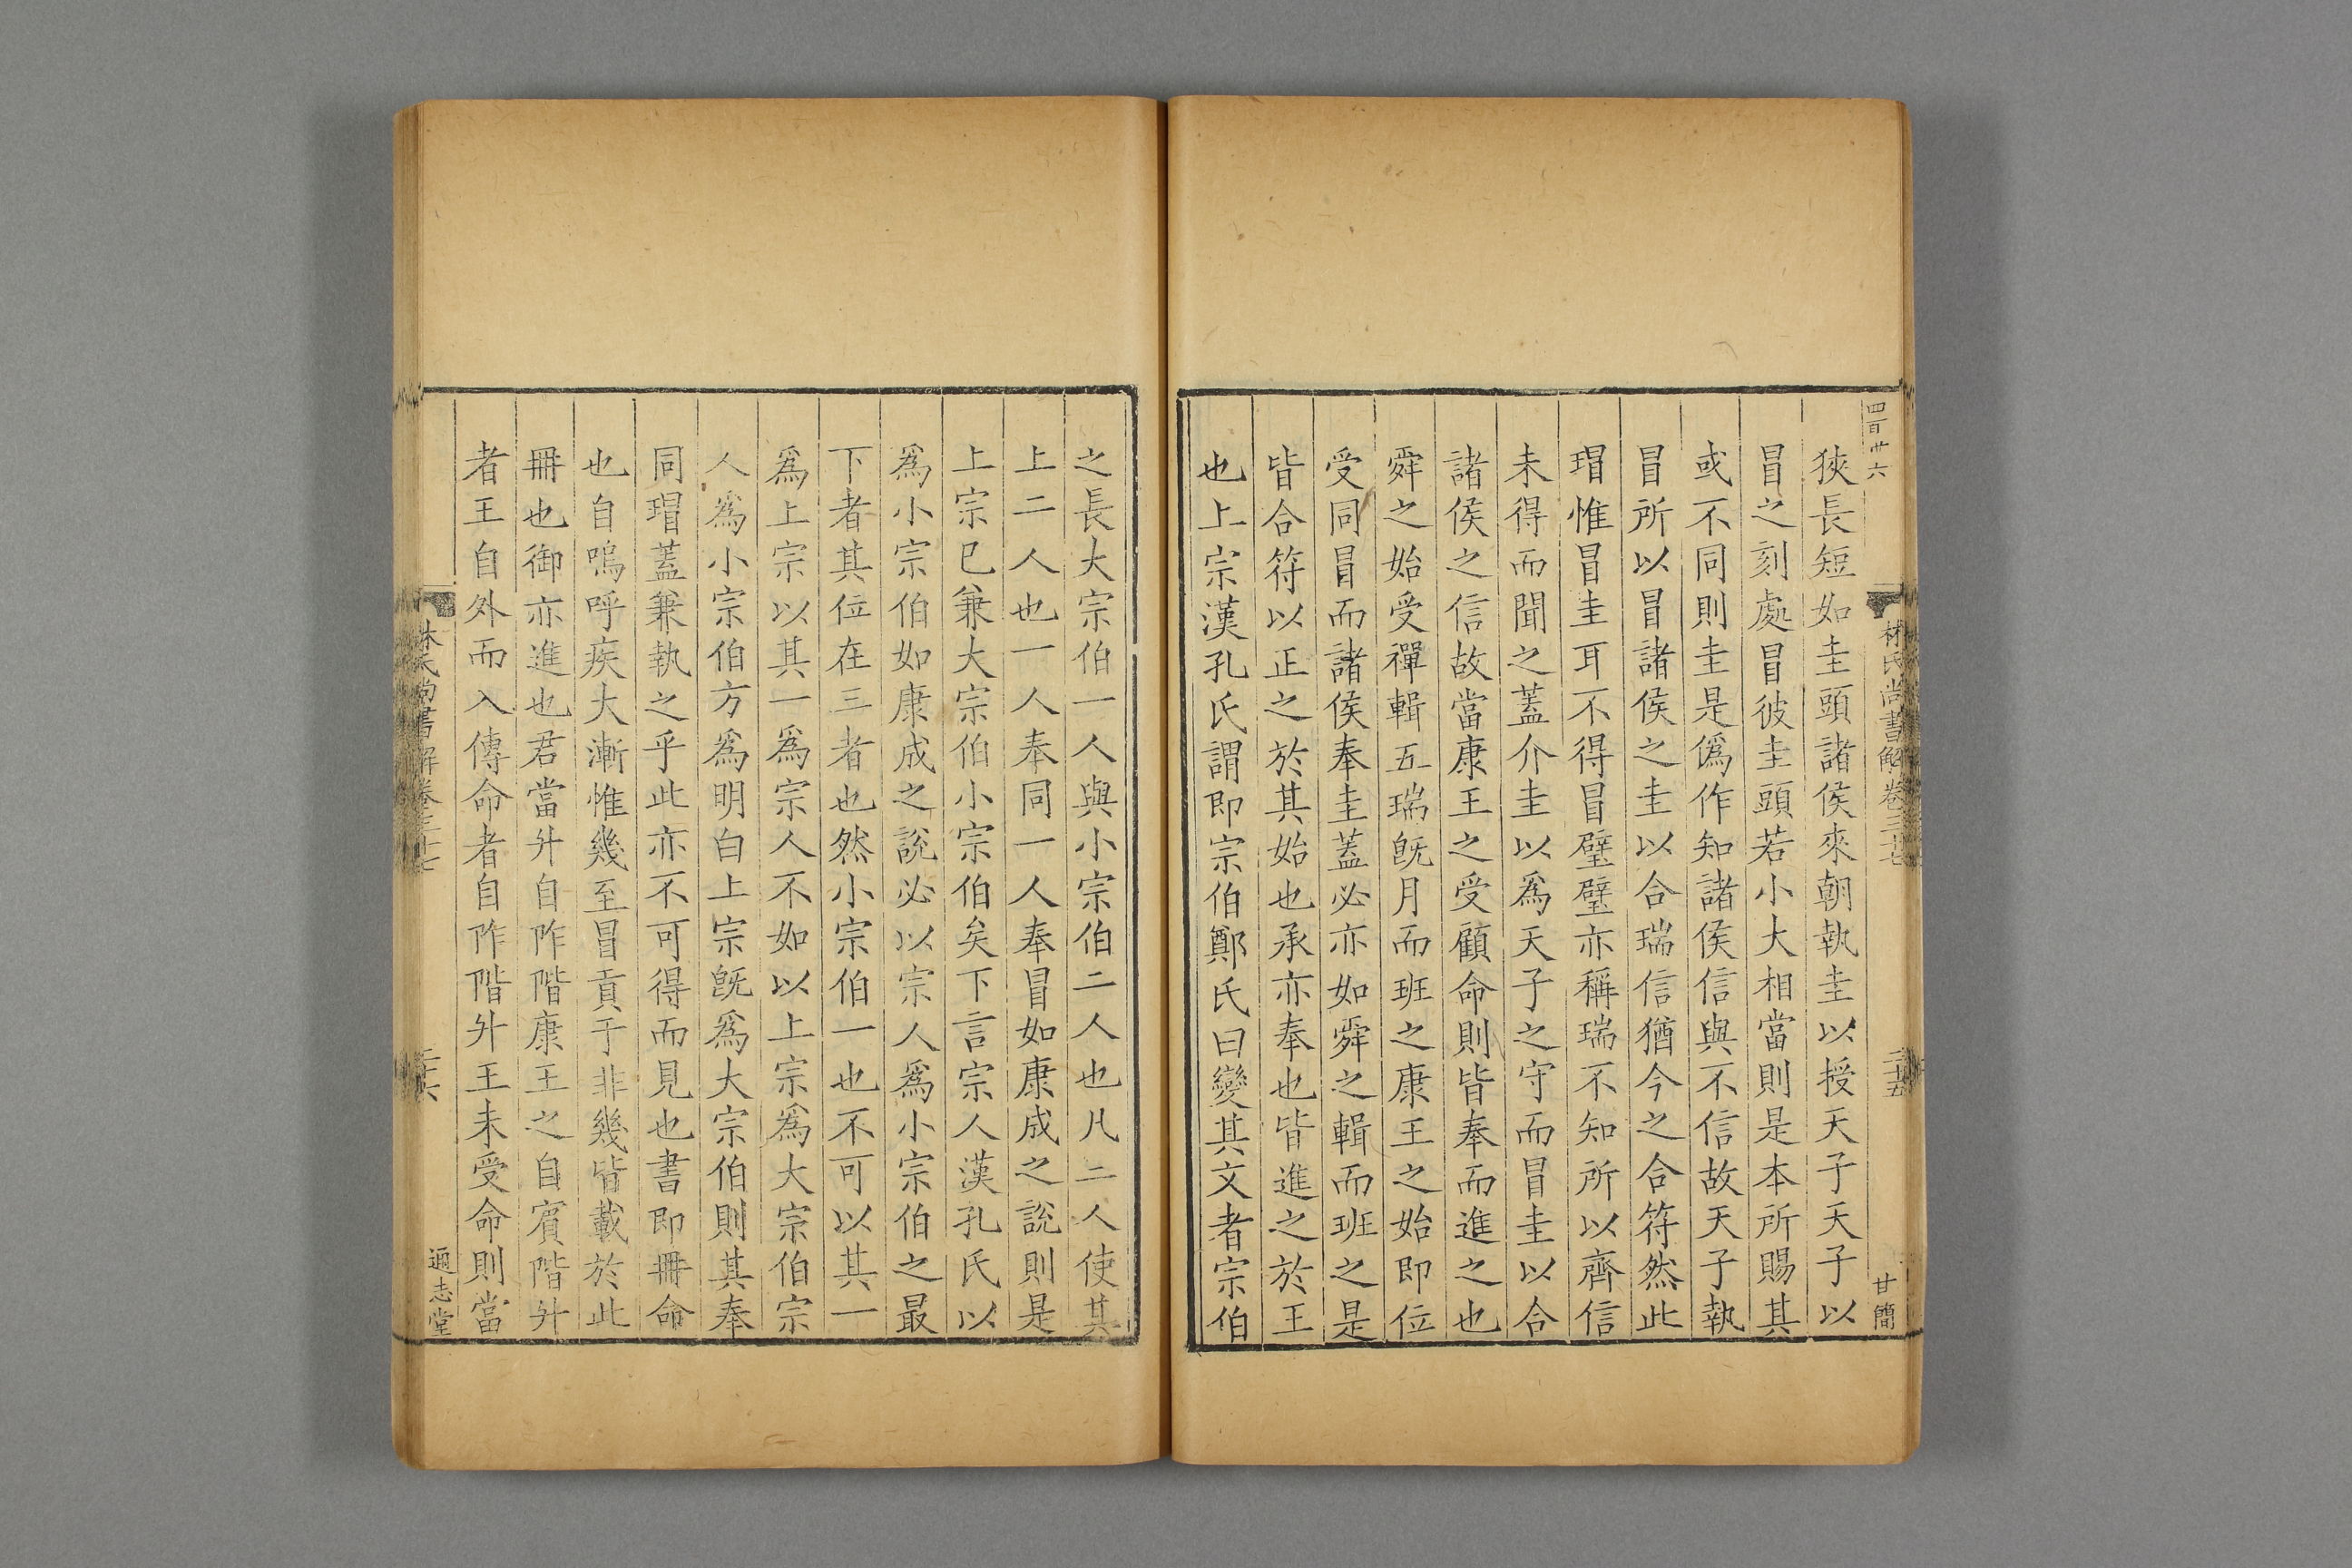 四百廿六
林氏尚書解卷三十七
二十五
甘簡
狹長短如圭頭諸侯來朝執圭以授天子天子以
冒之刻處冒彼圭頭若小大相當則是本所賜其
或不同則圭是僞作知諸侯信與不信故天子執
冒所以冒諸侯之圭以合瑞信猶今之合符然此
瑁惟冒圭耳不得冒璧璧亦稱瑞不知所以齊信
未得而聞之蓋介圭以爲天子之守而冒圭以合
諸侯之信故當康王之受顧命則皆奉而進之也
舜之始受禪輯五瑞旣月而班之康王之始即位
受同冒而諸侯奉圭蓋必亦如舜之輯而班之是
皆合符以正之於其始也承亦奉也皆進之於王
也上宗漢孔氏謂即宗伯鄭氏曰變其文者宗伯
之長大宗伯一人與小宗伯二人也凡二人使其
上二人也一人奉同一人奉冒如康成之說則是
上宗已兼大宗伯小宗伯矣下言宗人漢孔氏以
爲小宗伯如康成之說必以宗人爲小宗伯之最
下者其位在三者也然小宗伯一也不可以其一
爲上宗以其一爲宗人不如以上宗爲大宗伯宗
人爲小宗伯方爲明白上宗旣爲大宗伯則其奉
同瑁蓋兼執之乎此亦不可得而見也書即冊命
也自嗚呼疾大漸惟幾至冒貢于非幾皆載於此
冊也御亦進也君當升自阼階康王之自賓階升
者王自外而入傳命者自阼階升王未受命則當
林氏尚書解卷三十七
二十六
通志堂